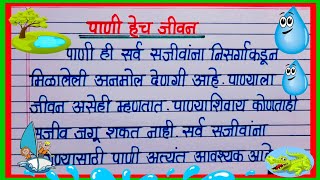 पाणी हेच जीवन
पाणी ही सर्व सजीवांना निसर्गाकडून
मिळालेली अनमोल देणगी आहे. पाण्याला
जीवन असेही म्हणतात. पाण्याशिवाय कोणताही
सजीव जगू शकत नाही. सर्व सजीवांना
पाणी अत्यंत आवश्यक आहे